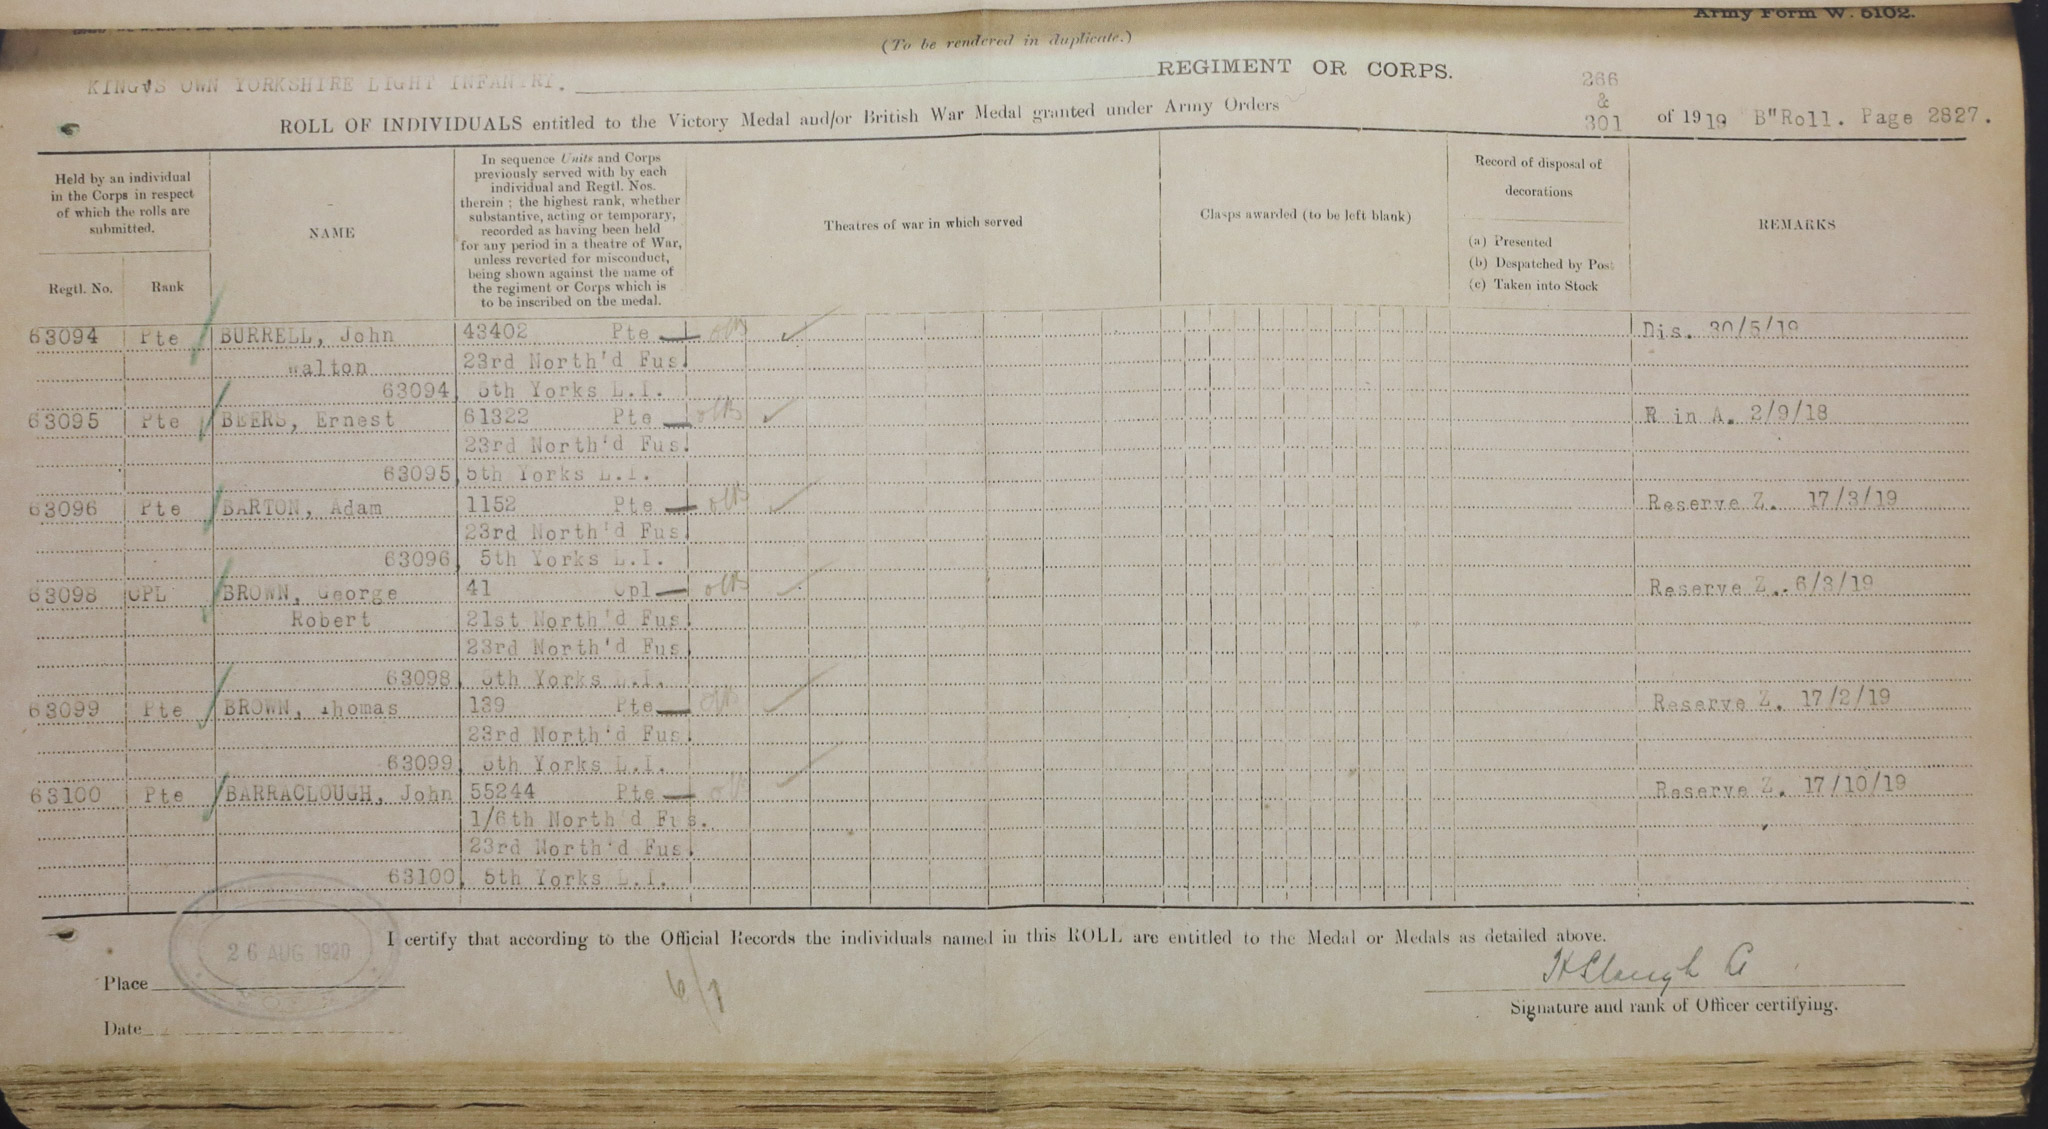 Army Form W. 5102.
(To be rendered in duplicate.)
KING'S OWN YORKSHIRE LIGHT INFANTRY. REGIMENT OR CORPS.
266
&
301
ROLL OF INDIVIDUALS entitled to the Victory Medal and/or British War Medal granted under Army Orders of 1919 B"Roll. Page 2827.
Held by an individual in the Corps in respect of which the rolls are submitted.
Regtl. No.
Rank
NAME
In sequence Units and Corps previously served with by each individual and Regtl. Nos. therein; the highest rank, whether substantive, acting or temporary, recorded as having been held for any period in a theatre of War, unless reverted for misconduct, being shown against the name of the regiment or Corps which is to be inscribed on the medal.
Theatres of war in which served
Clasps awarded (to be left blank)
Record of disposal of decorations
(a) Presented
(b) Despatched by Post
(c) Taken into Stock
REMARKS
63094 Pte BURRELL, John 43402 Pte Dis. 30/5/19
Walton 23rd North'd Fus.
63094, 5th Yorks L.I.
63095 Pte BEERS, Ernest 61322 Pte R in A. 2/9/18
23rd North'd Fus.
63095, 5th Yorks L.I.
63096 Pte BARTON, Adam 1152 Pte Reserve Z. 17/3/19
23rd North'd Fus.
63096, 5th Yorks L.I.
63098 CPL BROWN, George 41 Cpl Reserve Z. 6/3/19
Robert 21st North'd Fus.
23rd North'd Fus.
63098, 5th Yorks L.I.
63099 Pte BROWN, Thomas 139 Pte Reserve Z. 17/2/19
23rd North'd Fus.
63099, 5th Yorks L.I.
63100 Pte BARRACLOUGH, John 55244 Pte Reserve Z. 17/10/19
1/6th North'd Fus.
23rd North'd Fus.
63100, 5th Yorks L.I.
I certify that according to the Official Records the individuals named in this ROLL are entitled to the Medal or Medals as detailed above.
26 AUG 1920
Place
6/7
Signature and rank of Officer certifying.
Date